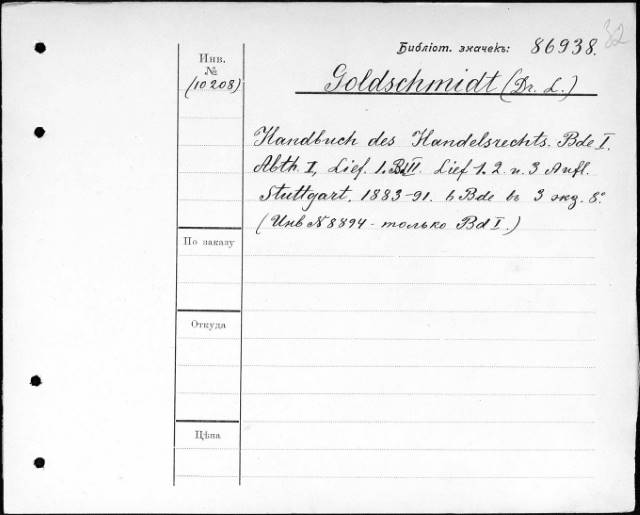 32
Библіот. значекъ: 86938.
Инв.
№
(10208)
Goldschmidt (Dr. L.)
Handbuch des Handelsrechts. Bde I.
Abth. I, Lief. 1. Bd III. Lief 1. 2. u. 3 Aufl.
Stuttgart, 1883-91. 6 Bde въ 3 экз. 8°.
(Инв № 8894 - только Bd I.)
По заказу
Откуда
Цѣна